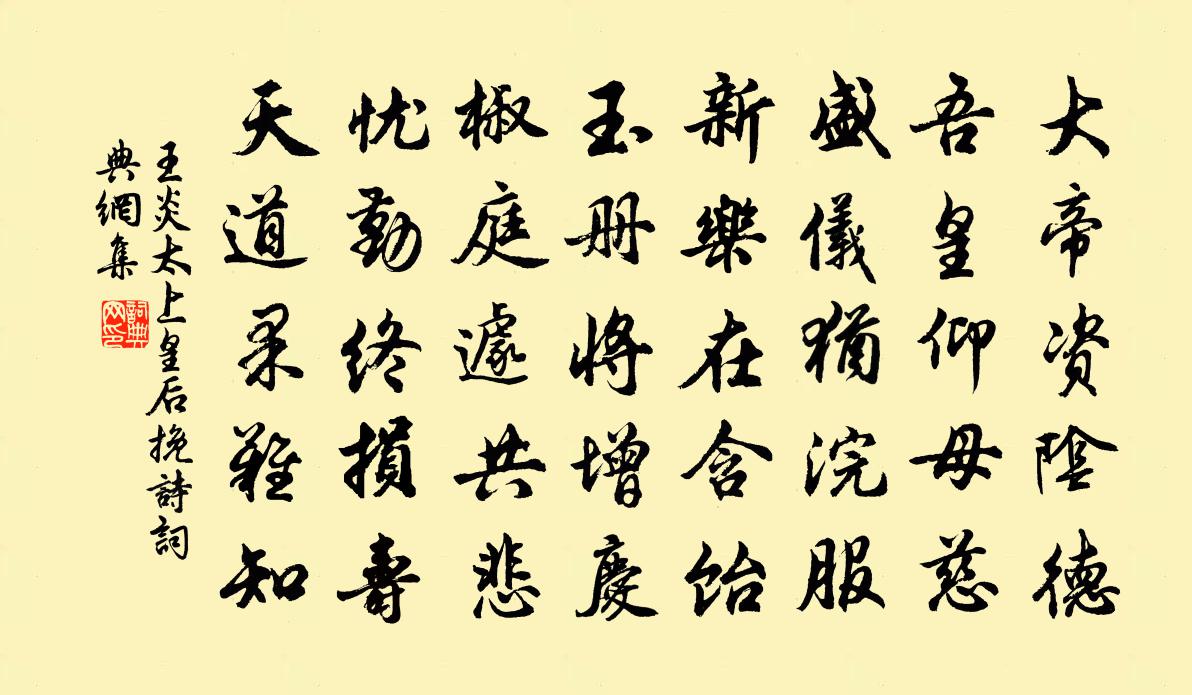 大帝資陰德
吾皇仰母慈
盛儀猶浣服
新樂在含飴
玉册將增慶
椒庭遽共悲
忧勤終損壽
天道果難知
王炎太上皇后挽詩詞
典網集
詞典
网印